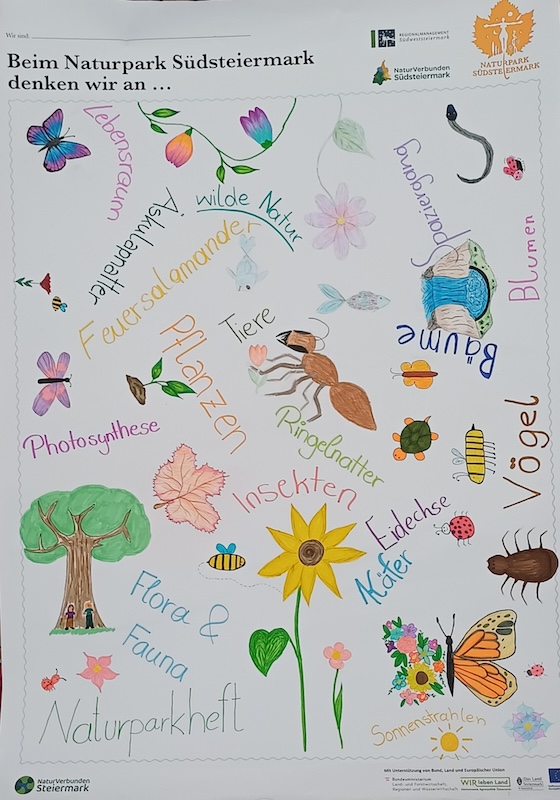 Wir sind:
Beim Naturpark Südsteiermark
denken wir an ...
REGIONALMANAGEMENT
Südweststeiermark
NaturVerbunden
Südsteiermark
NATURPARK
SÜDSTEIERMARK
Lebensraum
Äskulapnatter
wilde Natur
Spaziergang
Blumen
Feuersalamander
Tiere
Bäume
Pflanzen
Photosynthese
Ringelnatter
Vögel
Insekten
Eidechse
Käfer
Flora &
Fauna
Naturparkheft
Sonnenstrahlen
NaturVerbunden
Steiermark
Mit Unterstützung von Bund, Land und Europäischer Union
Bundesministerium
Land- und Forstwirtschaft,
Regionen und Wasserwirtschaft
WIR leben Land
Das Land
Steiermark